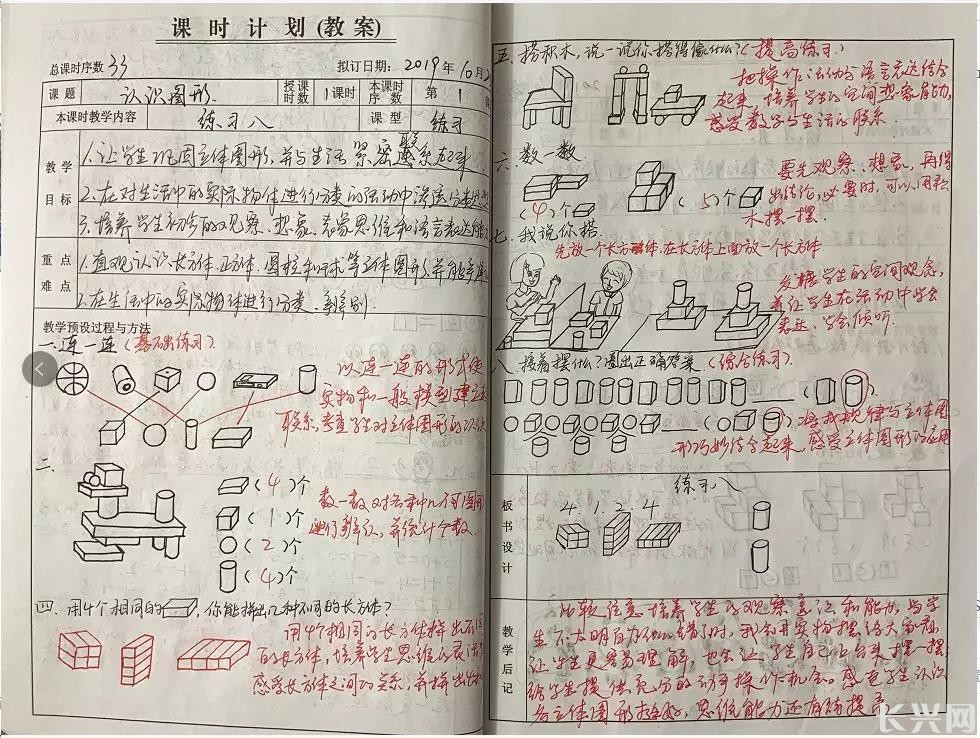 课时计划(教案)
总课时序数 33 拟订日期：2019年10月
课题 认识图形 授课时数 1课时 本课时序数 第1
本课时教学内容 练习八 课型 练习
教学目标
1.让学生巩固立体图形,并与生活紧密联系起来
2.在对生活中的实际物体进行分类的活动中渗透分类思想
3.培养学生初步的观察、想象、
思维和语言表达能
重点难点
1.直观认识长方体、正方体、圆柱和球等立体图形,并能
2.在生活中的实际物体进行分类、辨别
教学预设过程与方法
一.连一连(基础练习)
以连一连的形式使
实物和一般模型建立
联系,考查学生对立体图形的认识
二.
(4)个
(1)个
(2)个
(4)个
数一数
进行辨认,并统计个数
四.用4个相同的 ,你能拼出几种不同的长方体?
用4个相同的长方体拼出不同
的长方体,培养学生思维的
感受长方体之间的关系,并拼出
五.搭积木,说一说你搭得像什么?(提高练习)
把操作活动与语言表达结合
起来,培养学生的空间想象能力,
感受数学与生活的联系.
六.数一数
(4)个
(5)个
要先观察、想象,再得
出结论,必要时,可以用积
木摆一摆.
七.我说你搭
先放一个长方体,在长方体上面放一个长方体
发展学生的空间观念,
并让学生在活动中学会
表达、学会倾听.
八.接着摆什么?圈出正确答案(综合练习).
将找规律与立体图
形巧妙结合起来,感受立体图形的应用
板书设计
练习八
4. 1. 2. 4
教学后记
比较注意培养学生的观察意识和能力,当学
生不太明白为什么错了时,我会用实物摆给大家看,
让学生更容易理解,也会让学生自己上台来摆一摆
给学生提供充分的动手操作机会。感觉学生认识
各立体图形挺好,思维能力还有待提高
长兴网